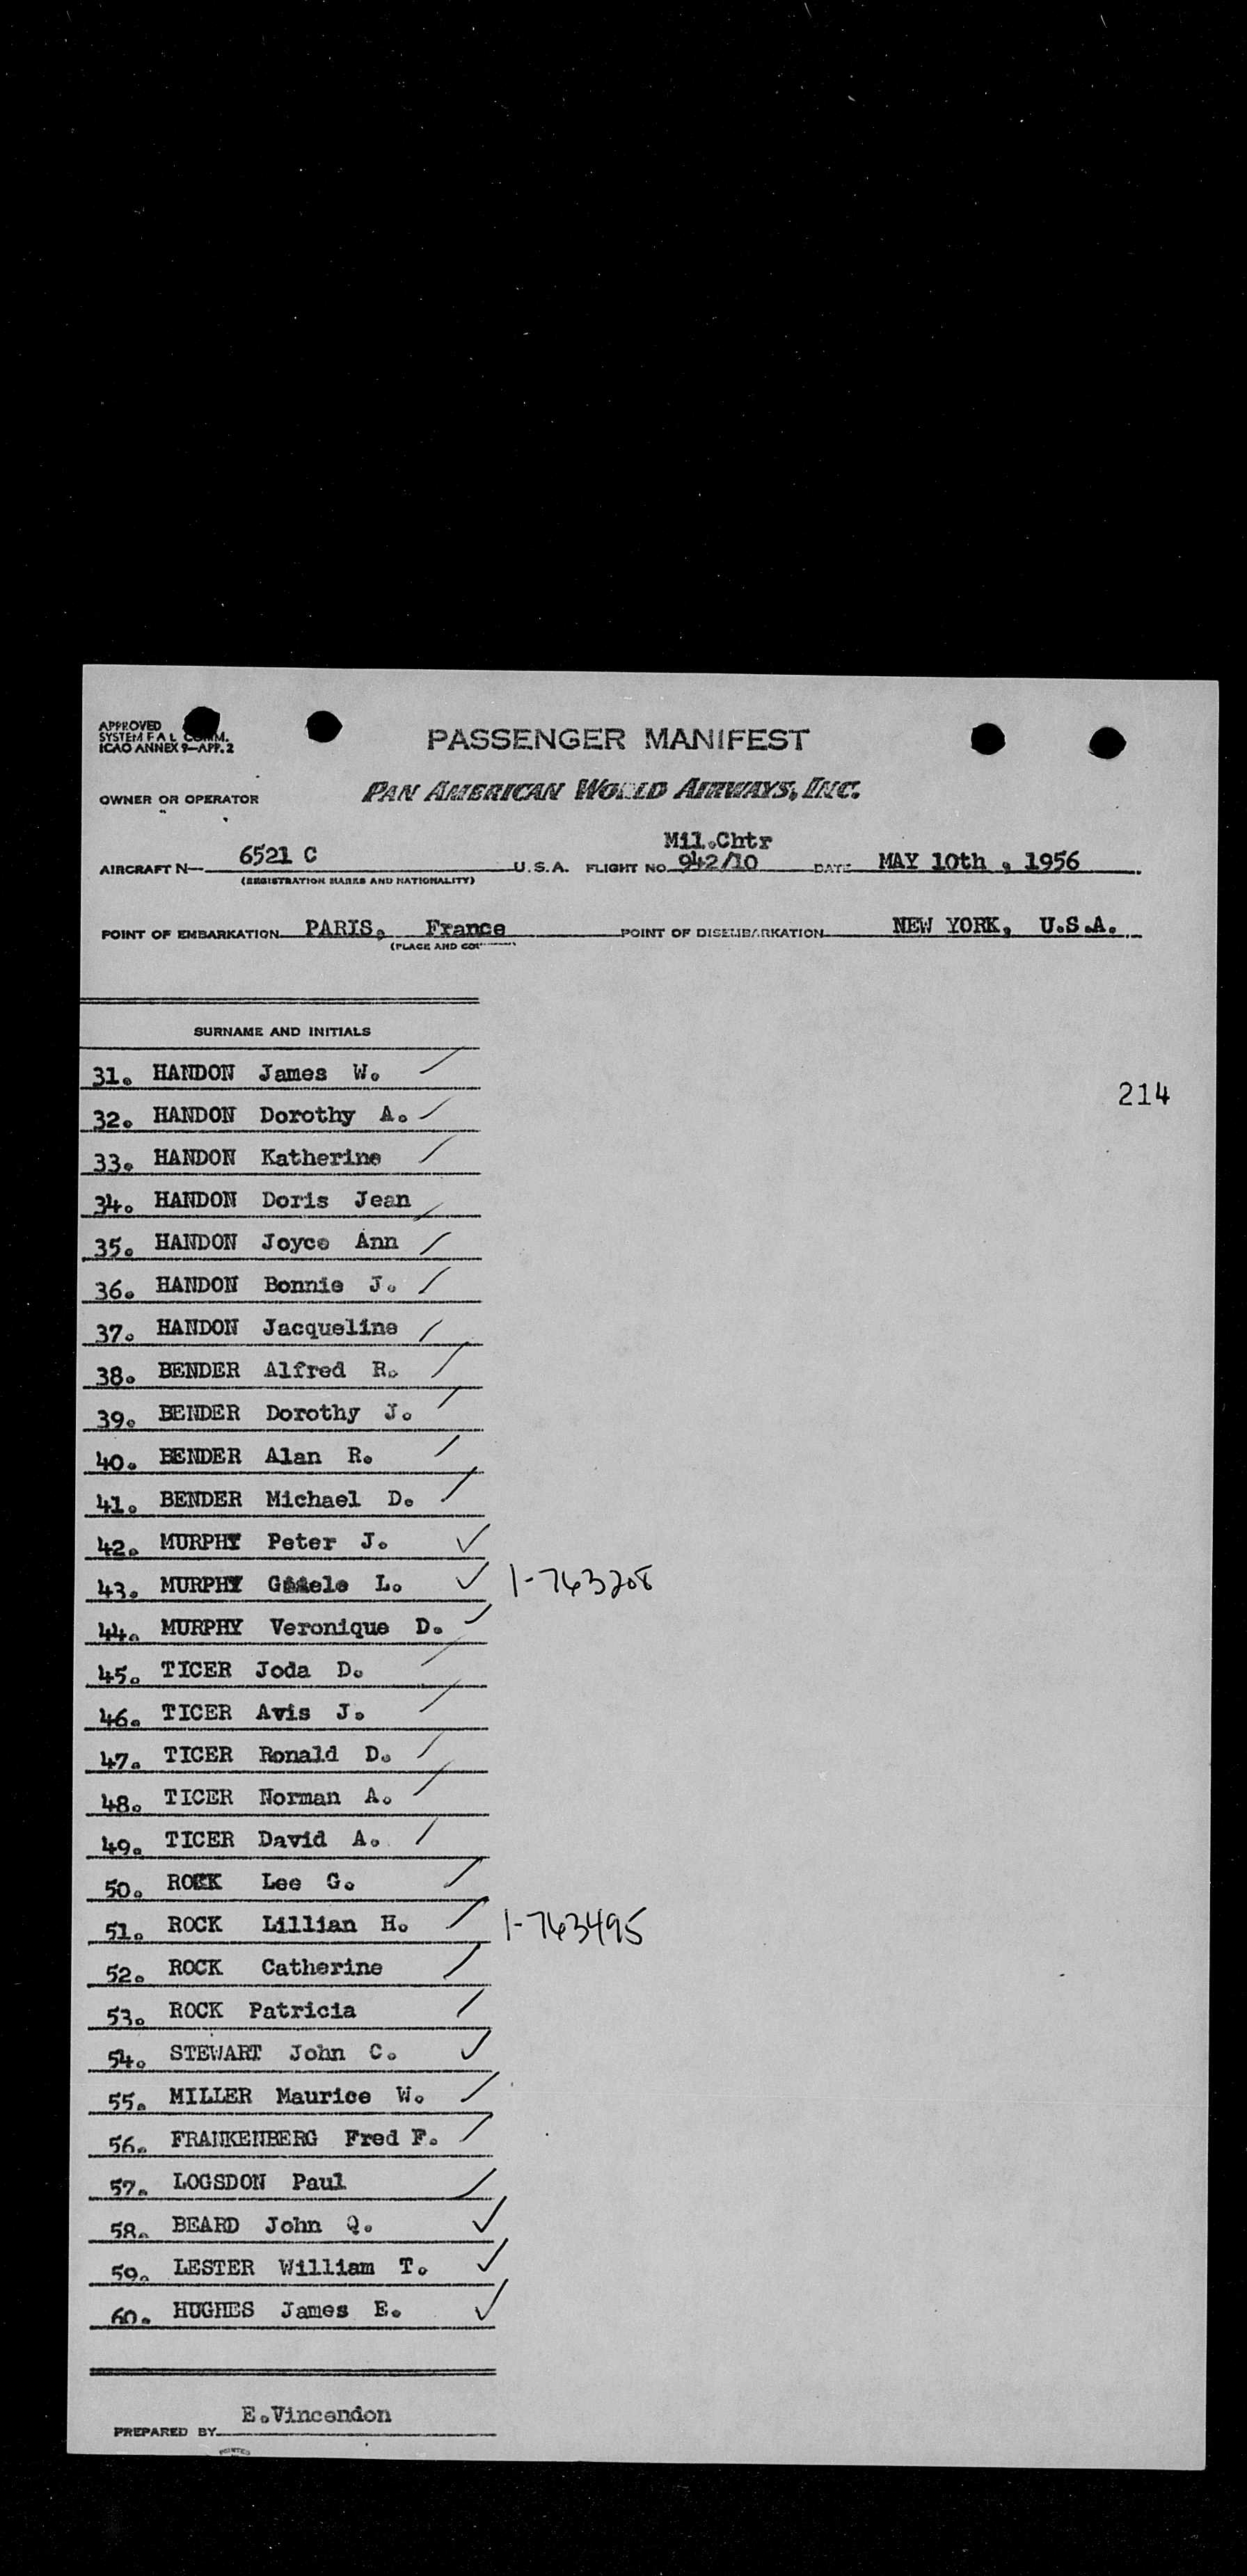 APPROVED
SYSTEM F A L COMM.
ICAO ANNEX 9—APP. 2
PASSENGER MANIFEST
OWNER OR OPERATOR
PAN AMERICAN WORLD AIRWAYS, INC.
Mil.Chtr
AIRCRAFT N— 6521 C U.S.A. FLIGHT NO. 942/10 DATE MAY 10th , 1956
(REGISTRATION MARKS AND NATIONALITY)
POINT OF EMBARKATION PARIS, France POINT OF DISEMBARKATION NEW YORK, U.S.A.
(PLACE AND
SURNAME AND INITIALS
31. HANDON James W.
214
32. HANDON Dorothy A.
33. HANDON Katherine
34. HANDON Doris Jean
35. HANDON Joyce Ann
36. HANDON Bonnie J.
37. HANDON Jacqueline
38. BENDER Alfred R.
39. BENDER Dorothy J.
40. BENDER Alan R.
41. BENDER Michael D.
42. MURPHY Peter J.
43. MURPHY L. 1-763208
44. MURPHY Veronique D.
45. TICER Joda D.
46. TICER Avis J.
47. TICER Ronald D.
48. TICER Norman A.
49. TICER David A.
50. ROCK Lee G.
51. ROCK Lillian H. 1-763495
52. ROCK Catherine
53. ROCK Patricia
54. STEWART John C.
55. MILLER Maurice W.
56. FRANKENBERG Fred F.
57. LOGSDON Paul
58. BEARD John Q.
59. LESTER William T.
60. HUGHES James E.
E.Vincendon
PREPARED BY
PRINTED